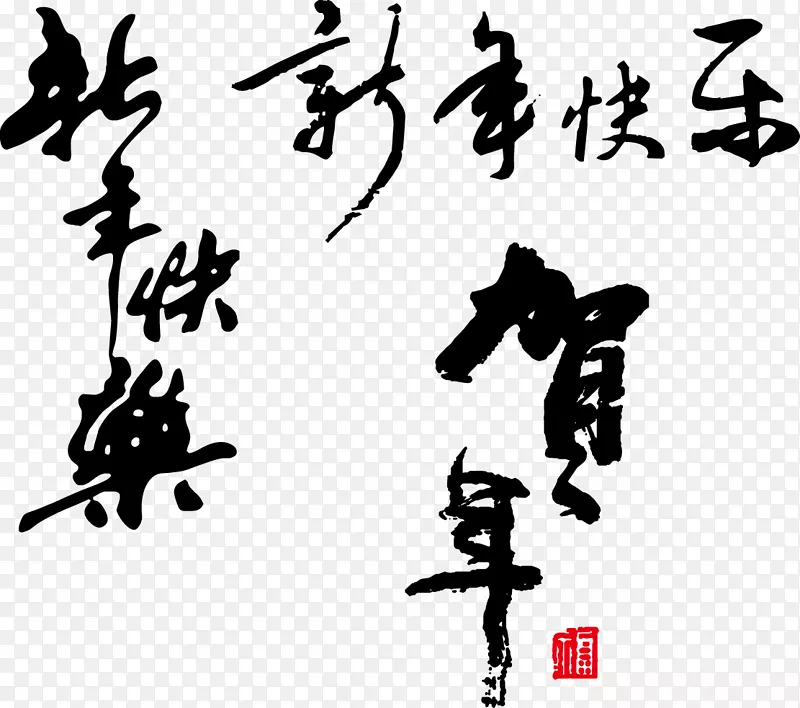 新年快樂
新年快乐
贺年